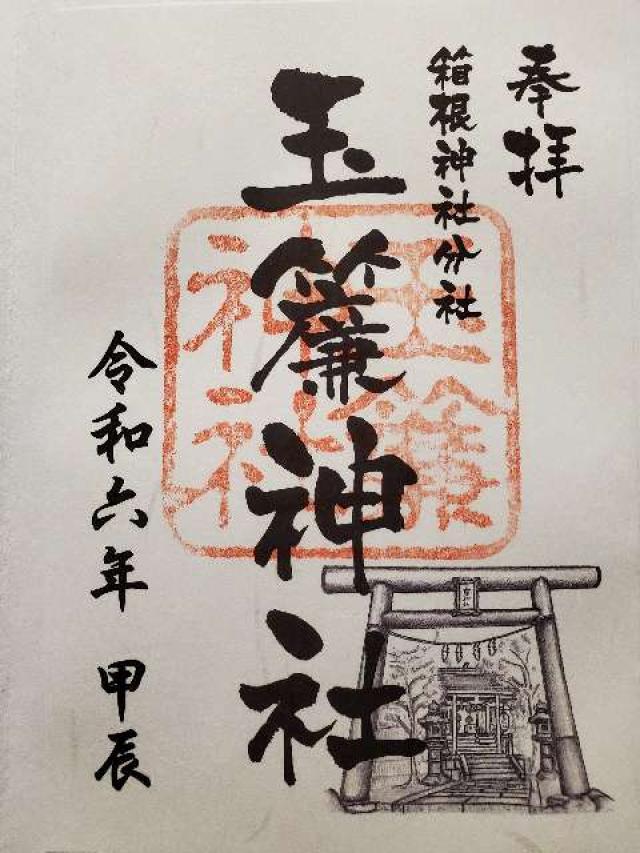 奉拝
箱根神社分社
玉簾神社
玉簾
神社
令和六年 甲辰